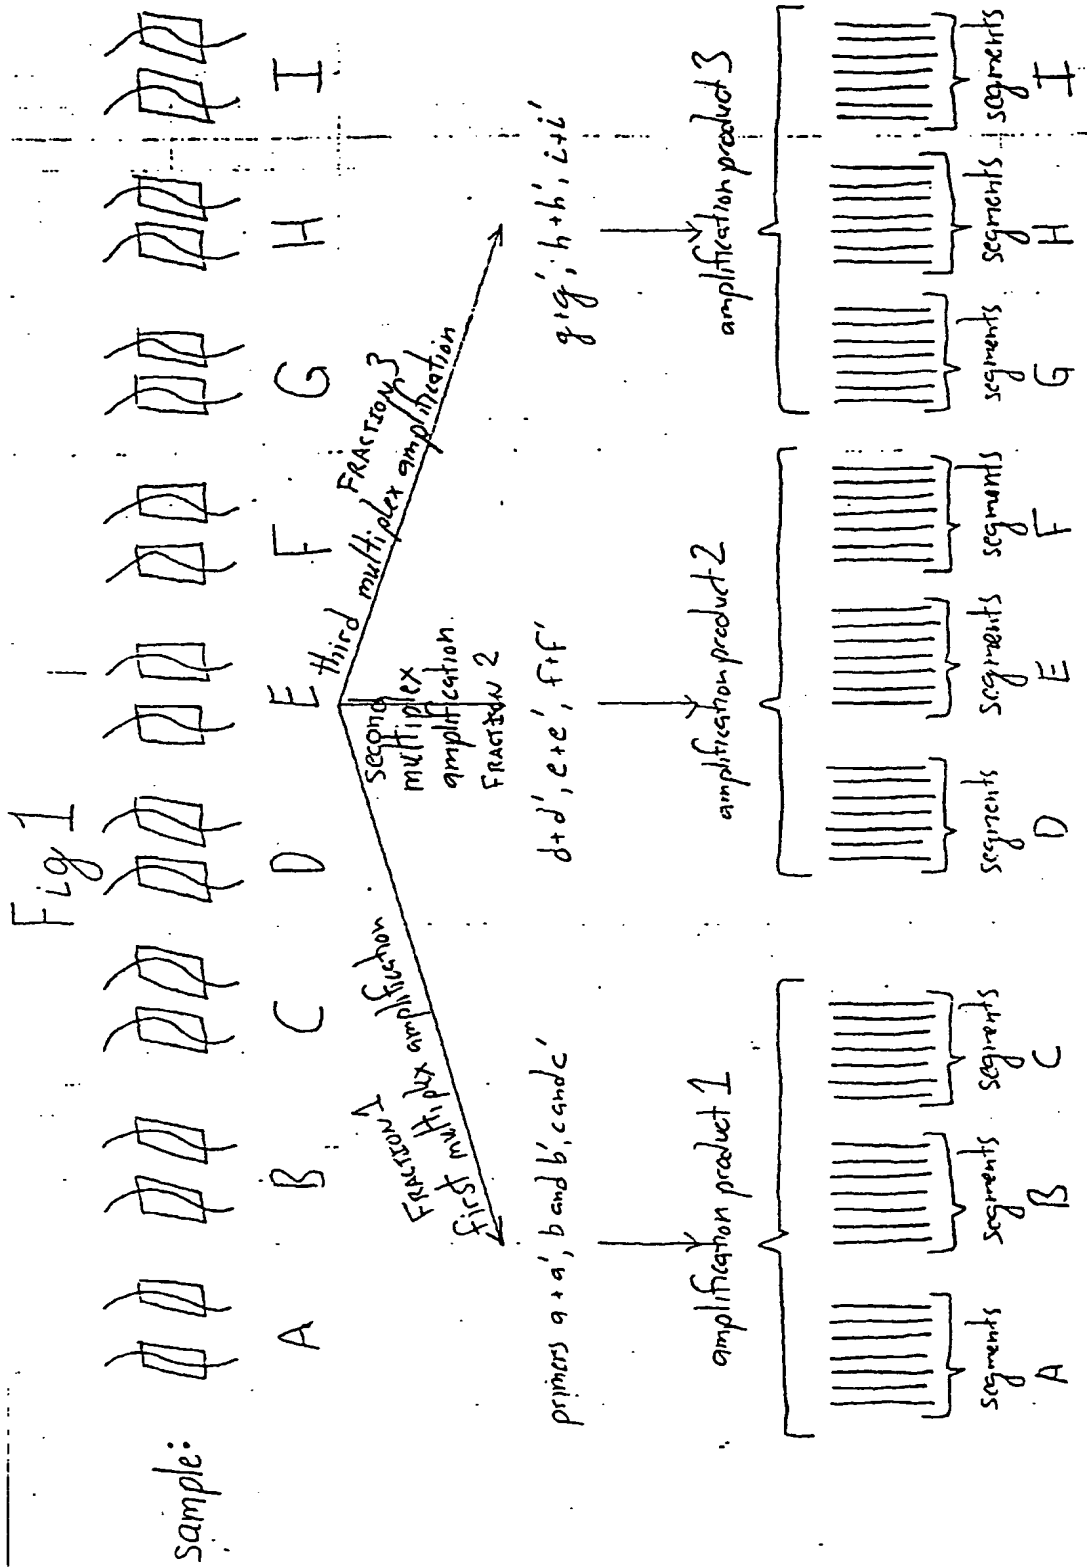 Fig 1
sample:
A B C D E F G H I
FRACTION 1
first multiplex amplification
second
multiplex
amplification
FRACTION 2
FRACTION 3
third multiplex amplification
primers a+a', b and b', c and c'
d+d', e+e', f+f'
g+g', h+h', i+i'
amplification product 1
amplification product 2
amplification product 3
segments
A
segments
B
segments
C
segments
D
segments
E
segments
F
segments
G
segments
H
segments
I